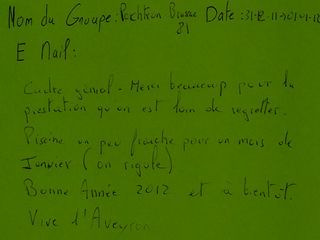 Nom du Groupe: Date: 31-12-11->01-01-12
21
E Mail:
Cadre génial. Merci beaucoup pour la
prestation qu'on est loin de regretter.
Piscine un peu fraiche pour un mois de
Janvier (on rigole)
Bonne Année 2012 et à bientôt.
Vive l'Aveyron